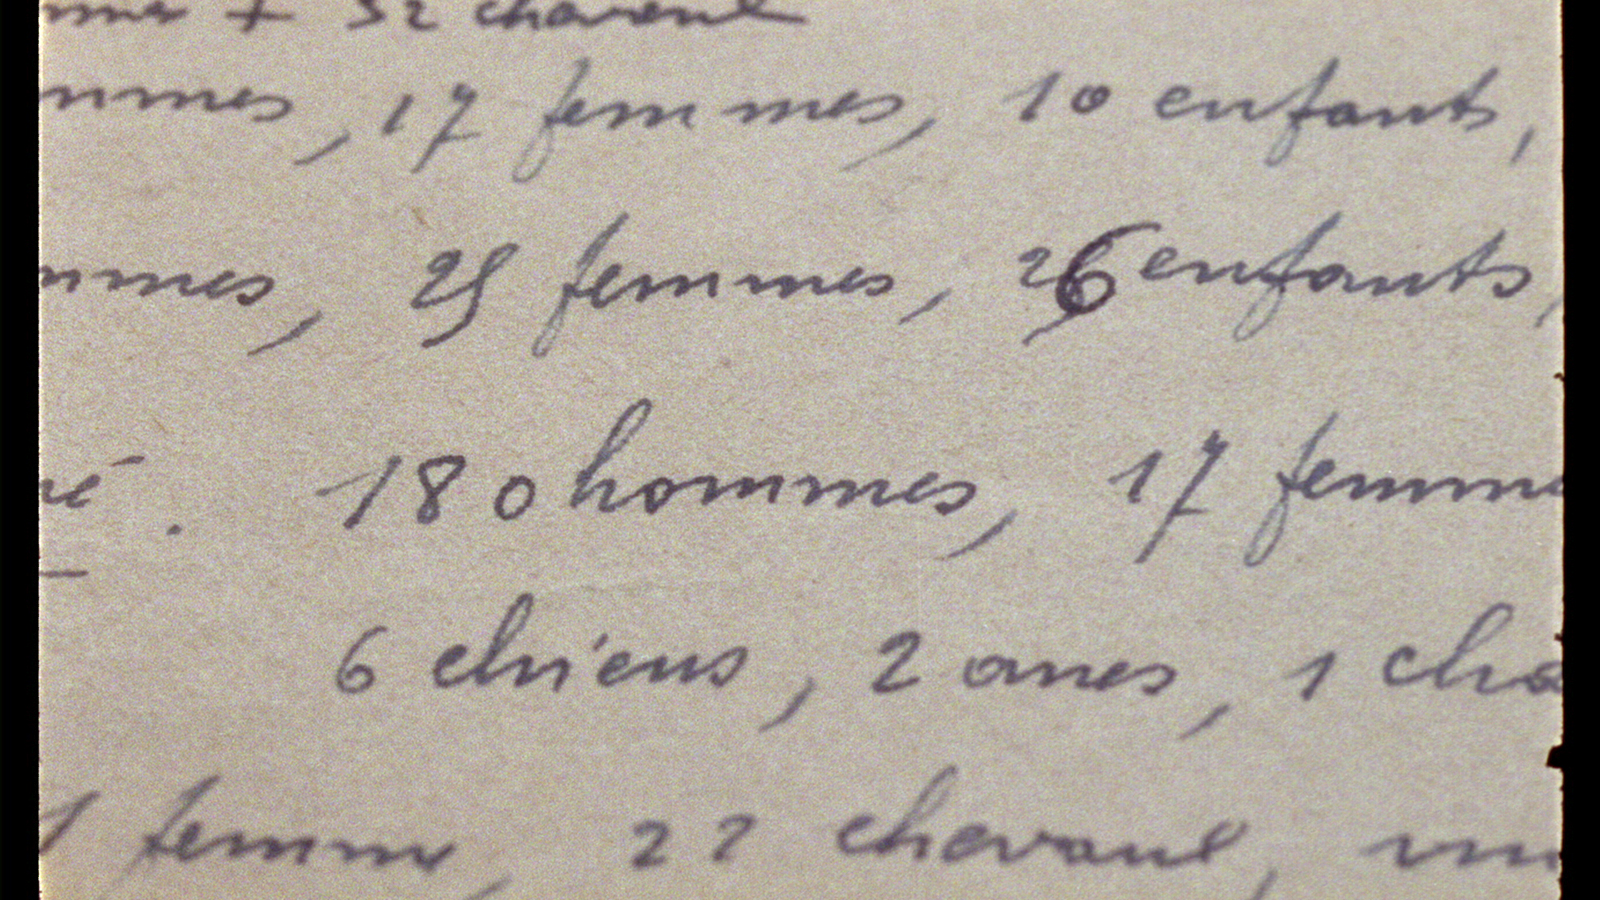 + 52 chevaux
mmes, 17 femmes, 10 enfants,
mmes, 25 femmes, 26 enfants,
né. 180 hommes, 17 femme
6 chiens, 2 anes, 1 cha
1 femme, 22 chevaux,